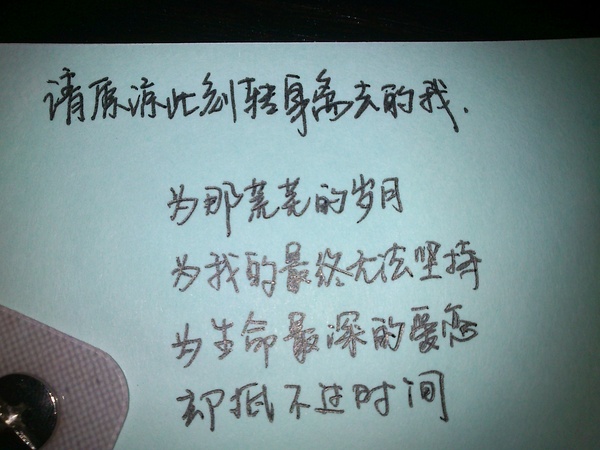 请原谅此刻转身离去的我.
为那荒芜的岁月
为我的最终无法坚持
为生命最深的爱恋
却抵不过时间